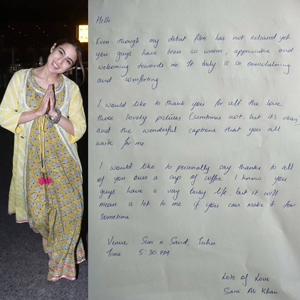 Hello
Even though my debut film has not released yet
you guys have been so warm, appreciative and
welcoming towards me. It truly is so overwhelming
and comforting
I would like to thank you for all the love
those lovely pictures (sometimes not, but it's okay)
and the wonderful captions that you all
write for me
I would like to personally say thanks to all
of you over a cup of coffee. I know you
guys have a very busy life but it will
mean a lot to me if you can make it for
sometime
Venue Sun n Sand, Juhu
Time 5:30 PM
Lots of Love
Sara Ali Khan